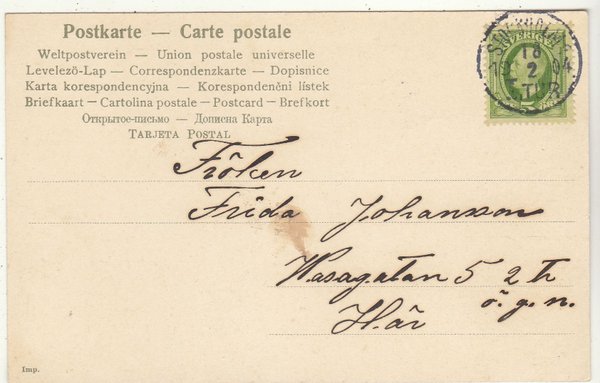 Postkarte — Carte postale
Weltpostverein — Union postale universelle
Levelezö-Lap — Correspondenzkarte — Dopisnice
Karta korespondencyjna — Korespondenční lístek
Briefkaart — Cartolina postale — Postcard — Brefkort
Открытое-письмо — Дописна Карта
Tarjeta Postal
SVERIGE
18
2
04
5
Fröken
Frida Johansson
Wasagatan 5 2 tr
ö. g. n.
Här
Imp.